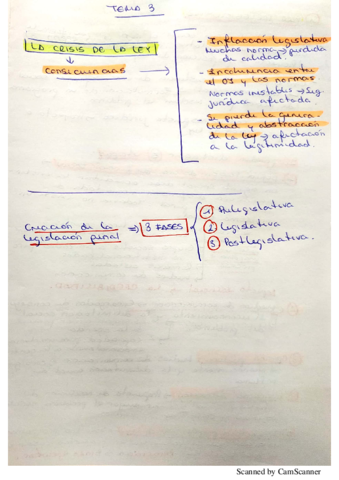 TEMA 3
LA CRISIS DE LA LEY
CONSECUENCIAS →
- Inflación legislativa
Muchas normas → pérdida
de calidad.
- Incoherencia entre
el OJ y las normas
Normas inestables → Seg.
jurídica afectada.
- Se pierde la genera-
lidad y abstracción
de la ley → afectación
a la legitimidad.
Creación de la
legislación penal ⇒ 3 FASES
1 Prelegislativa
2 Legislativa
3 Postlegislativa.
Scanned by CamScanner